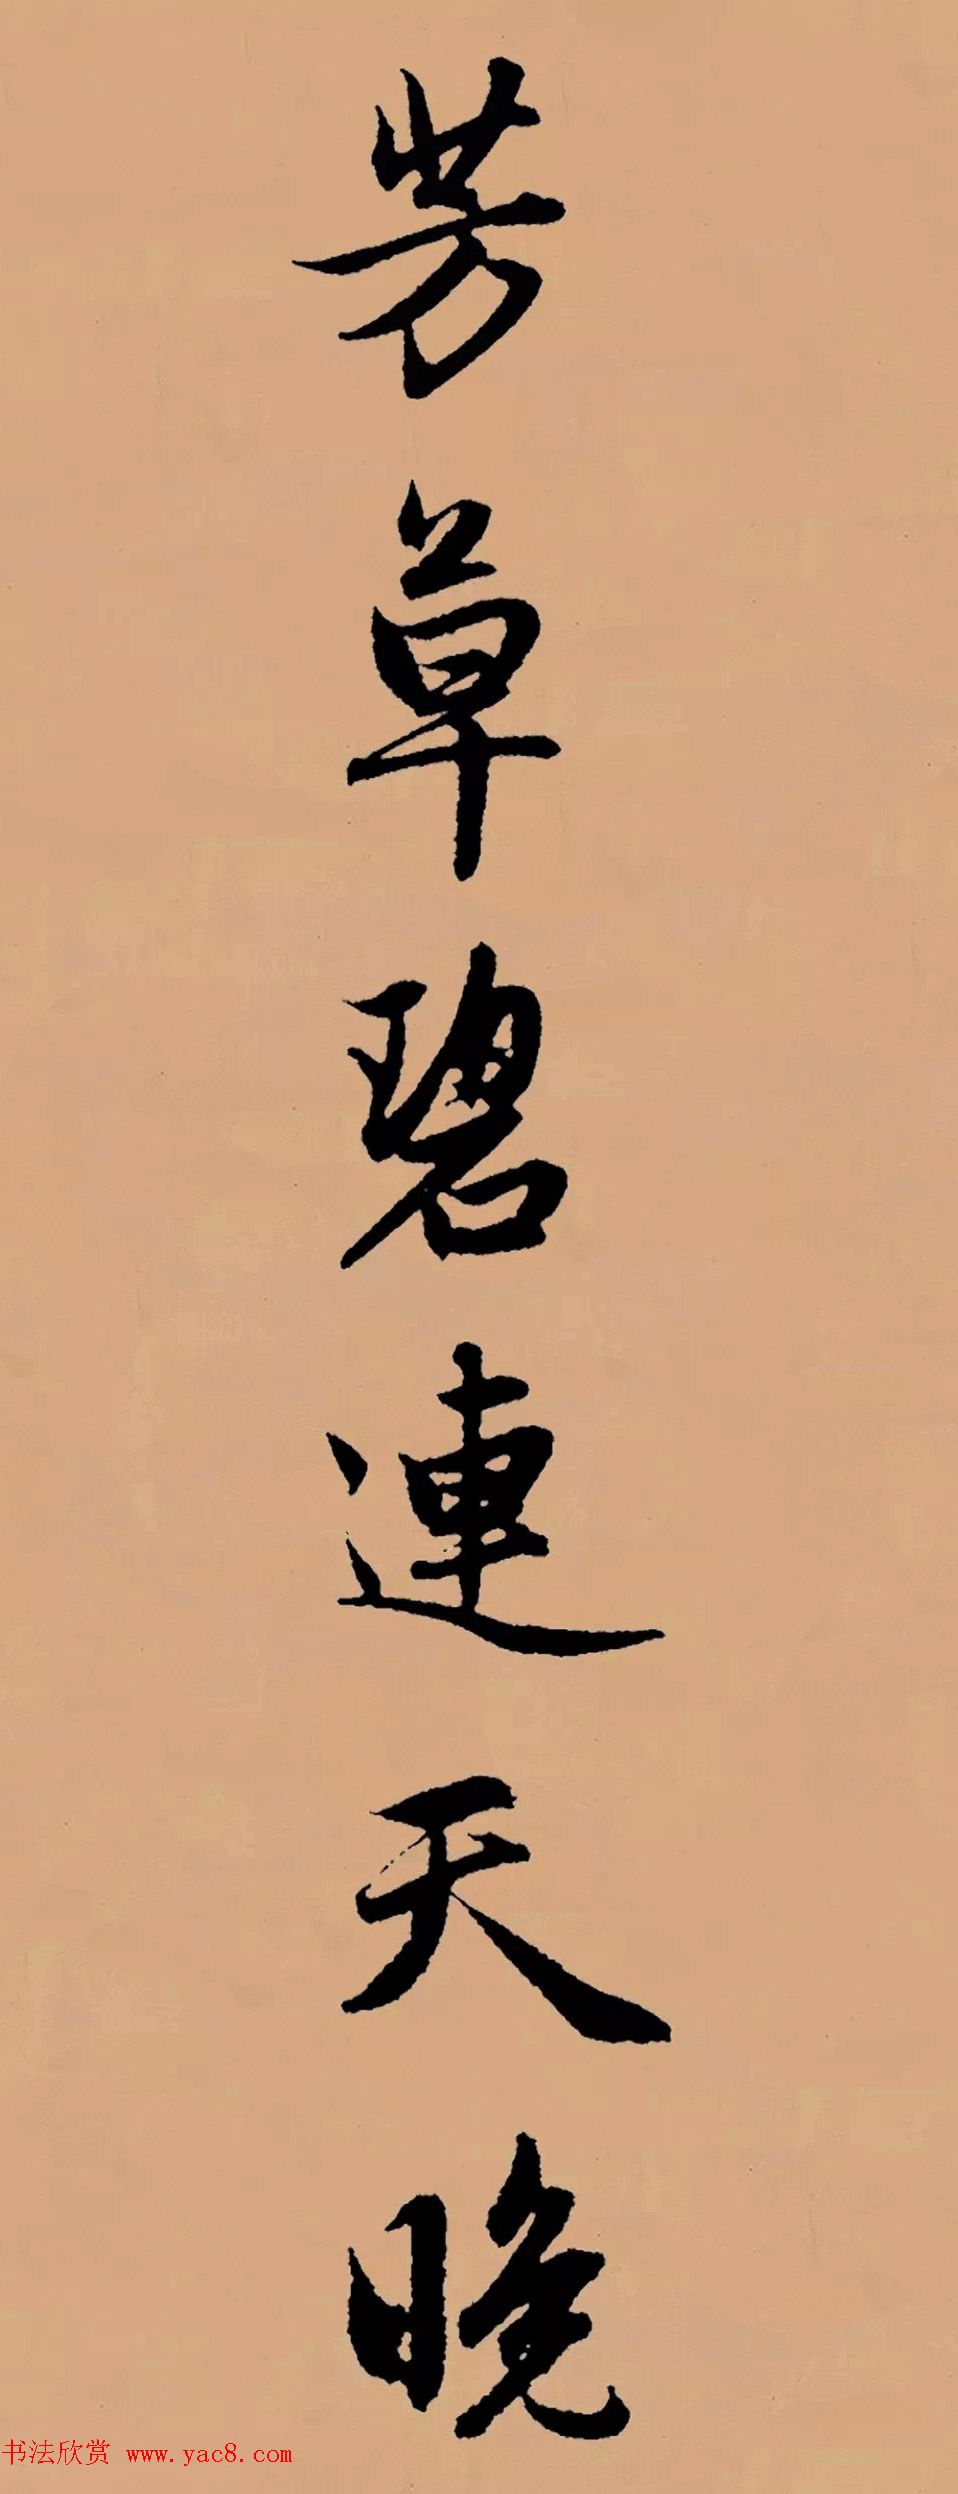 芳草碧連天晚
书法欣赏 www.yac8.com